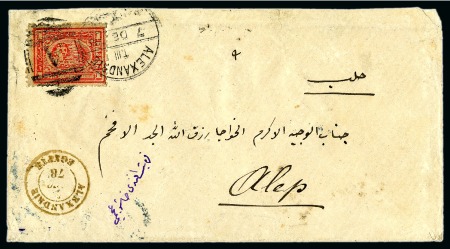 ALEXANDRIE
T.III
7 DE
٩
حلب
جناب الوجيه الاكرم الخواجا رزق الله الجد الافخم
Alep
ALEXANDRIE
78
EGYPTE